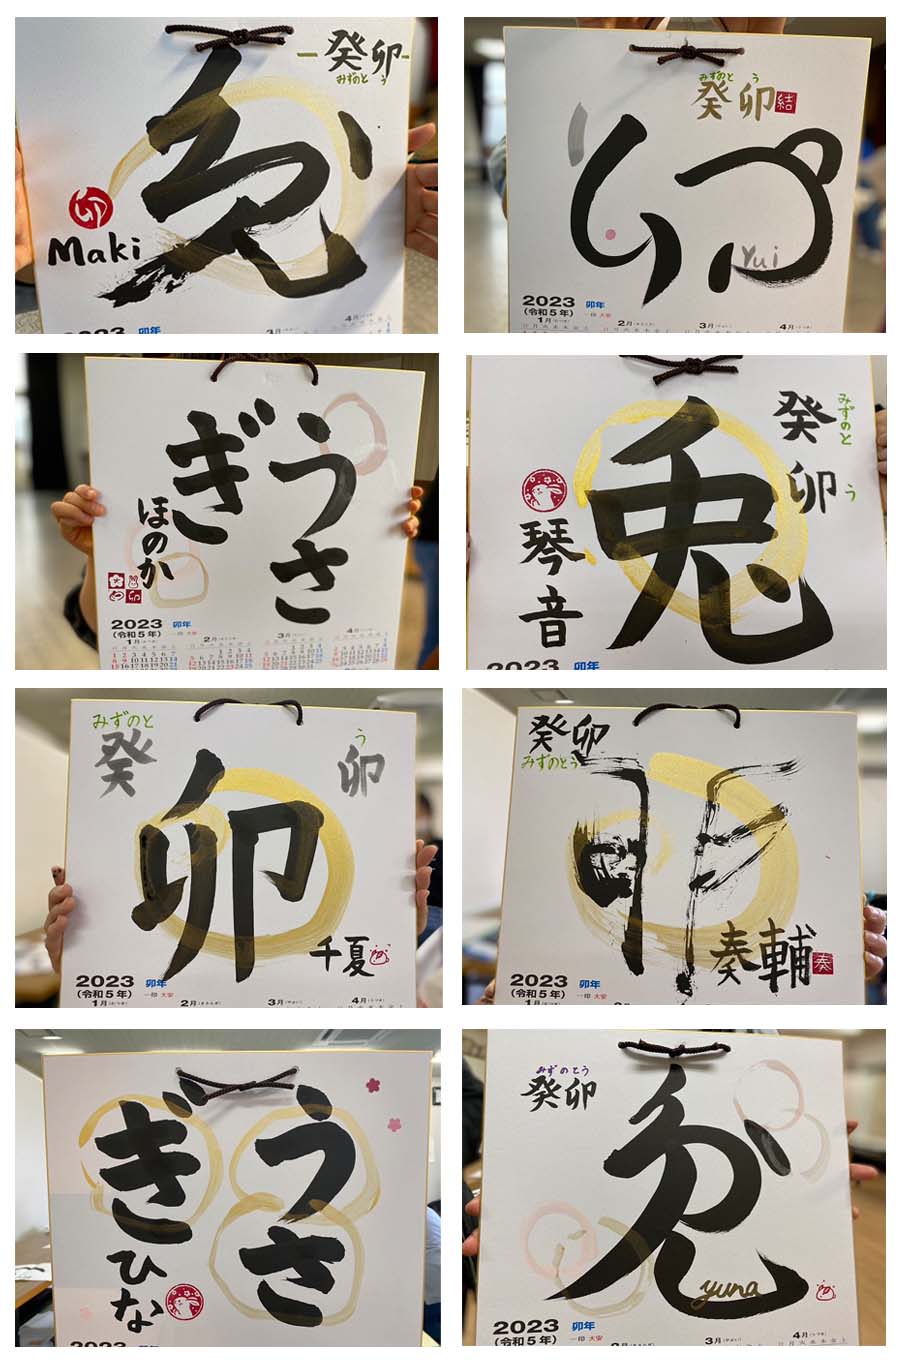 癸卯
みずのと う
兎
卯
Maki
2023 卯年
3月
みずのと う
癸卯
結
卯
Yui
2023 卯年
(令和5年) 一印 大安
1月 2月 3月 4月
うさぎ
ほのか
卯
2023 卯年
(令和5年) 一印 大安
1月 2月 3月 4月
癸卯
みずのと う
兎
琴音
2023 卯年
みずのと う
癸 卯
卯
千夏
2023 卯年
(令和5年) 一印 大安
1月 2月 3月 4月
癸卯
みずのとう
卯
奏輔
奏
2023 卯年
(令和5年) 一印 大安
うさぎ
ひな
2023 卯年
みずのとう
癸卯
兎
yuna
2023 卯年
(令和5年) 一印 大安
1月 2月 3月 4月